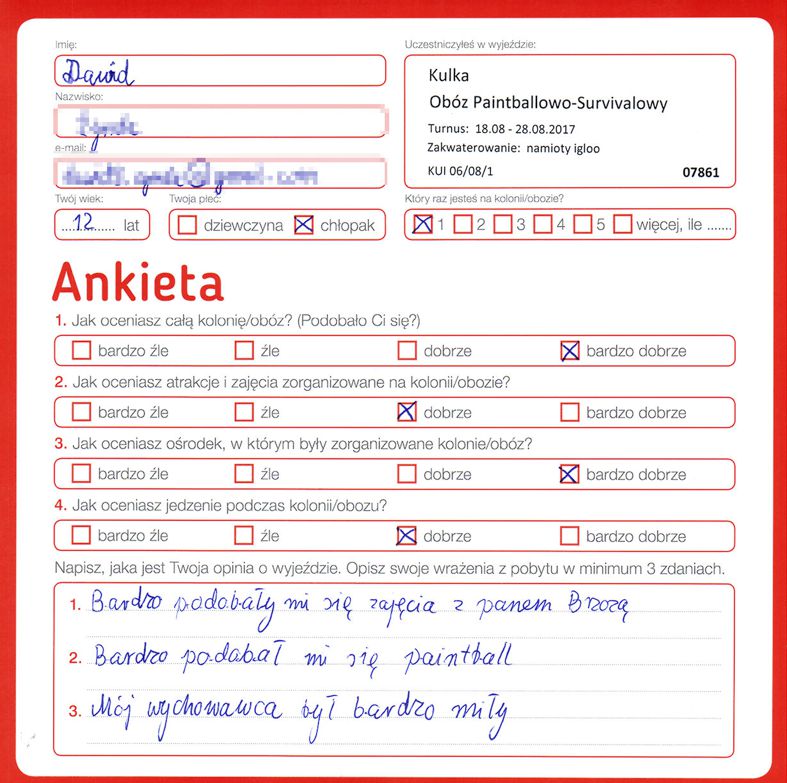 Imię:
Dawid
Uczestniczyłeś w wyjeździe:
Kulka
Obóz Paintballowo-Survivalowy
Turnus: 18.08 - 28.08.2017
Zakwaterowanie: namioty igloo
KUI 06/08/1 07861
Nazwisko:
e-mail:
Twój wiek:
12 lat
Twoja płeć:
dziewczyna chłopak
Który raz jesteś na kolonii/obozie?
1 2 3 4 5 więcej, ile .......
Ankieta
1. Jak oceniasz całą kolonię/obóz? (Podobało Ci się?)
bardzo źle źle dobrze bardzo dobrze
2. Jak oceniasz atrakcje i zajęcia zorganizowane na kolonii/obozie?
bardzo źle źle dobrze bardzo dobrze
3. Jak oceniasz ośrodek, w którym były zorganizowane kolonie/obóz?
bardzo źle źle dobrze bardzo dobrze
4. Jak oceniasz jedzenie podczas kolonii/obozu?
bardzo źle źle dobrze bardzo dobrze
Napisz, jaka jest Twoja opinia o wyjeździe. Opisz swoje wrażenia z pobytu w minimum 3 zdaniach.
1. Bardzo podobały mi się zajęcia z panem Brzozą
2. Bardzo podobał mi się paintball
3. Mój wychowawca był bardzo miły